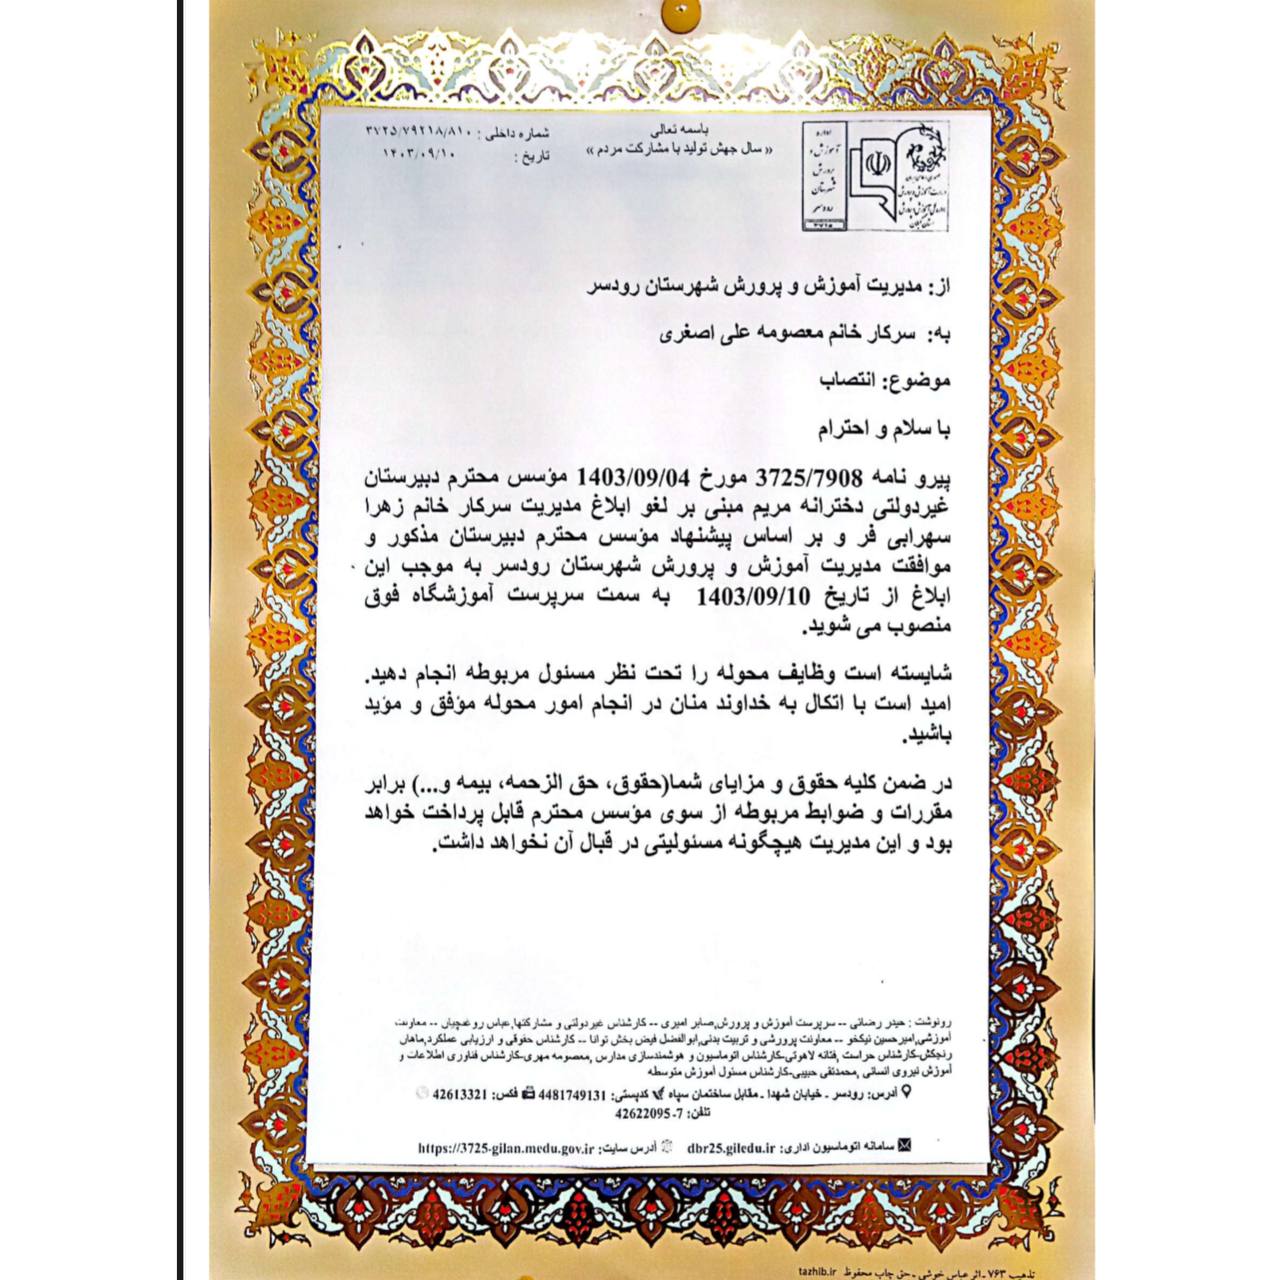 باسمه تعالی
« سال جهش تولید با مشارکت مردم »
شماره داخلی : ۳۷۲۵/۷۹۲۱۸/۸۱۰
تاریخ : ۱۴۰۳/۰۹/۱۰
اداره
آموزش و
پرورش
شهرستان
رودسر
از: مدیریت آموزش و پرورش شهرستان رودسر
به: سرکار خانم معصومه علی اصغری
موضوع: انتصاب
با سلام و احترام
پیرو نامه 3725/7908 مورخ 1403/09/04 مؤسس محترم دبیرستان
غیردولتی دخترانه مریم مبنی بر لغو ابلاغ مدیریت سرکار خانم زهرا
سهرابی فر و بر اساس پیشنهاد مؤسس محترم دبیرستان مذکور و
موافقت مدیریت آموزش و پرورش شهرستان رودسر به موجب این
ابلاغ از تاریخ 1403/09/10 به سمت سرپرست آموزشگاه فوق
منصوب می شوید.
شایسته است وظایف محوله را تحت نظر مسئول مربوطه انجام دهید.
امید است با اتکال به خداوند منان در انجام امور محوله مؤفق و مؤید
باشید.
در ضمن کلیه حقوق و مزایای شما(حقوق، حق الزحمه، بیمه و...) برابر
مقررات و ضوابط مربوطه از سوی مؤسس محترم قابل پرداخت خواهد
بود و این مدیریت هیچگونه مسئولیتی در قبال آن نخواهد داشت.
رونوشت : حیدر رضائی -- سرپرست آموزش و پرورش,صابر امیری -- کارشناس غیردولتی و مشارکتها,عباس روغنچیان -- معاونت
آموزشی,امیرحسین نیکخو -- معاونت پرورشی و تربیت بدنی,ابوالفضل فیض بخش توانا -- کارشناس حقوقی و ارزیابی عملکرد,ماهان
رنجکش-کارشناس حراست ,فتانه لاهوتی-کارشناس اتوماسیون و هوشمندسازی مدارس ,معصومه مهری-کارشناس فناوری اطلاعات و
آموزش نیروی انسانی ,محمدتقی حبیبی-کارشناس مسئول آموزش متوسطه
آدرس: رودسر ـ خیابان شهدا ـ مقابل ساختمان سپاه کدپستی: 4481749131 فکس: 42613321
تلفن: 7-42622095
سامانه اتوماسیون اداری: dbr25.giledu.ir آدرس سایت: https://3725-gilan.medu.gov.ir
تذهیب ۷۶۳ ـ اثر عباس خوشی ـ حق چاپ محفوظ tazhib.ir